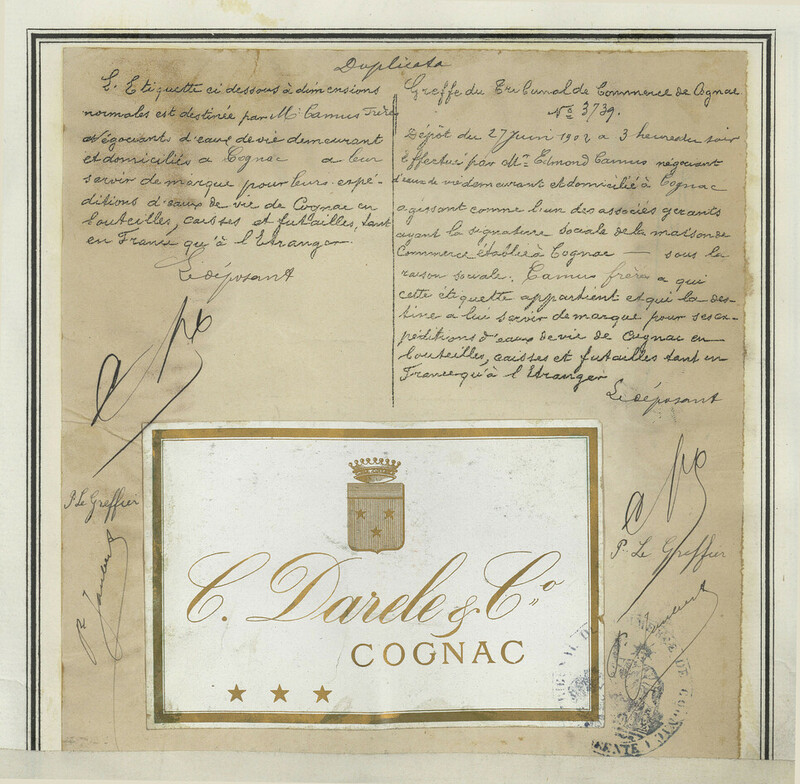 Duplicata
L'Etiquette ci dessous à dimensions
normales est destinée par Mrs Camus Frères
négociants d'eaux de vie demeurant
et domiciliés à Cognac a leur
servir de marque pour leurs expé-
ditions d'eaux de vie de Cognac en
bouteilles, caisses et futailles, tant
en France qu'à l'Etranger.
Le déposant
P. Le Greffier
Greffe du Tribunal de Commerce de Cognac
No 3739.
Dépôt du 27 Juin 1902 a 3 heures du soir
Effectué par Mr Edmond Camus négociant
d'eaux de vie demeurant et domicilié à Cognac
agissant comme l'un des associés gérants
ayant la signature sociale de la maison de
Commerce établie à Cognac — sous la
raison sociale. Camus frères a qui
cette étiquette appartient et qui la des-
tine a lui servir de marque pour ses ex-
péditions d'eaux de vie de Cognac en
bouteilles, caisses et futailles tant en
France qu'à l'Etranger
Le déposant
P. Le Greffier
C. Darele & Co
COGNAC